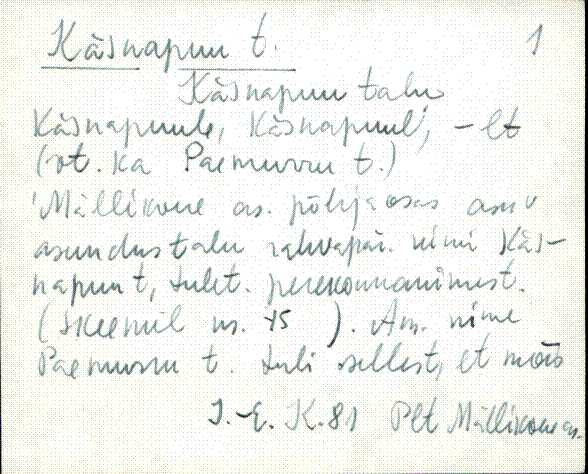 Käsnapuu t. 1
Käsnapuu talu
Käsnapuule, Käsnapuul, -lt
(vt. ka Paemurru t.)
'Mällikvere as. põhjaosas asuv
asundustalu rahvapär. nimi Käs-
napuu t, tulet. perekonnanimest.
(Skeemil nr. 45 ). Am. nime
Paemurru t. tuli sellest, et mõis
J.-E. K. 81 Plt Mällikvere as.